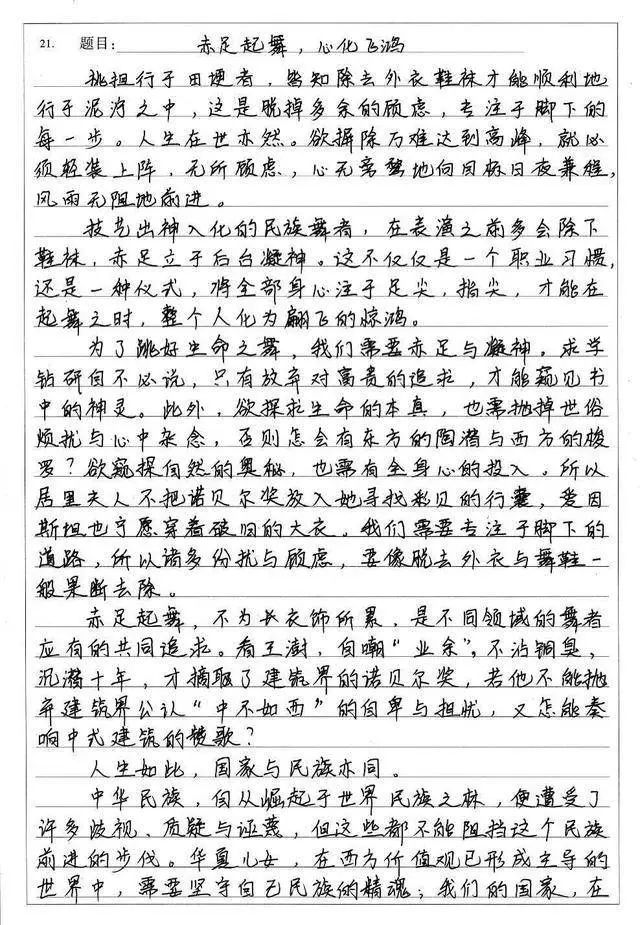 21. 题目： 赤足起舞，心化飞鸿
挑担行于田埂者，皆知除去外衣鞋袜才能顺利地
行于泥泞之中，这是脱掉多余的顾虑，专注于脚下的
每一步。人生在世亦然。欲摒除万难达到高峰，就必
须轻装上阵，无所顾虑，心无旁骛地向目标日夜兼程，
风雨无阻地前进。
技艺出神入化的民族舞者，在表演之前多会除下
鞋袜，赤足立于后台凝神。这不仅仅是一个职业习惯，
还是一种仪式，将全部身心注于足尖，指尖，才能在
起舞之时，整个人化为翩飞的惊鸿。
为了跳好生命之舞，我们需要赤足与凝神。求学
钻研自不必说，只有放弃对高贵的追求，才能窥见书
中的神灵。此外，欲探求生命的本真，也需抛掉世俗
烦扰与心中杂念，否则怎会有东方的陶潜与西方的梭
罗？欲窥探自然的奥秘，也需有全身心的投入。所以
居里夫人不把诺贝尔奖放入她寻找彩贝的行囊，爱因
斯坦也宁愿穿着破旧的大衣。我们需要专注于脚下的
道路，所以诸多纷扰与顾虑，要像脱去外衣与舞鞋一
般果断去除。
赤足起舞，不为长衣饰所累，是不同领域的舞者
应有的共同追求。看王澍，自嘲“业余”，不沾铜臭，
沉潜十年，才摘取了建筑界的诺贝尔奖，若他不能抛
弃建筑界公认“中不如西”的自卑与担忧，又怎能奏
响中式建筑的凌歌？
人生如此，国家与民族亦同。
中华民族，自从崛起于世界民族之林，便遭受了
许多歧视、质疑与诬蔑，但这些都不能阻挡这个民族
前进的步伐。华夏儿女，在西方价值观已形成主导的
世界中，需要坚守自己民族的精魂；我们的国家，在